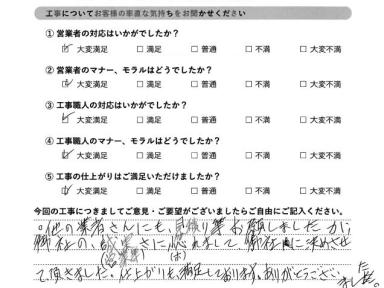 工事についてお客様の率直な気持ちをお聞かせください
① 営業者の対応はいかがでしたか?
☑ 大変満足 □ 満足 □ 普通 □ 不満 □ 大変不満
② 営業者のマナー、モラルはどうでしたか?
☑ 大変満足 □ 満足 □ 普通 □ 不満 □ 大変不満
③ 工事職人の対応はいかがでしたか?
☑ 大変満足 □ 満足 □ 普通 □ 不満 □ 大変不満
④ 工事職人のマナー、モラルはどうでしたか?
☑ 大変満足 □ 満足 □ 普通 □ 不満 □ 大変不満
⑤ 工事の仕上がりはご満足いただけましたか?
☑ 大変満足 □ 満足 □ 普通 □ 不満 □ 大変不満
今回の工事につきましてご意見・ご要望がございましたらご自由にご記入ください。
他の業者さんにも、見積り等お願しましたが、
御社の、誠実さに惚れまして、御社に決めさせ
(営業率) (ホ)
て頂きました。仕上がりも、満足しております。ありがとうござい
ました。